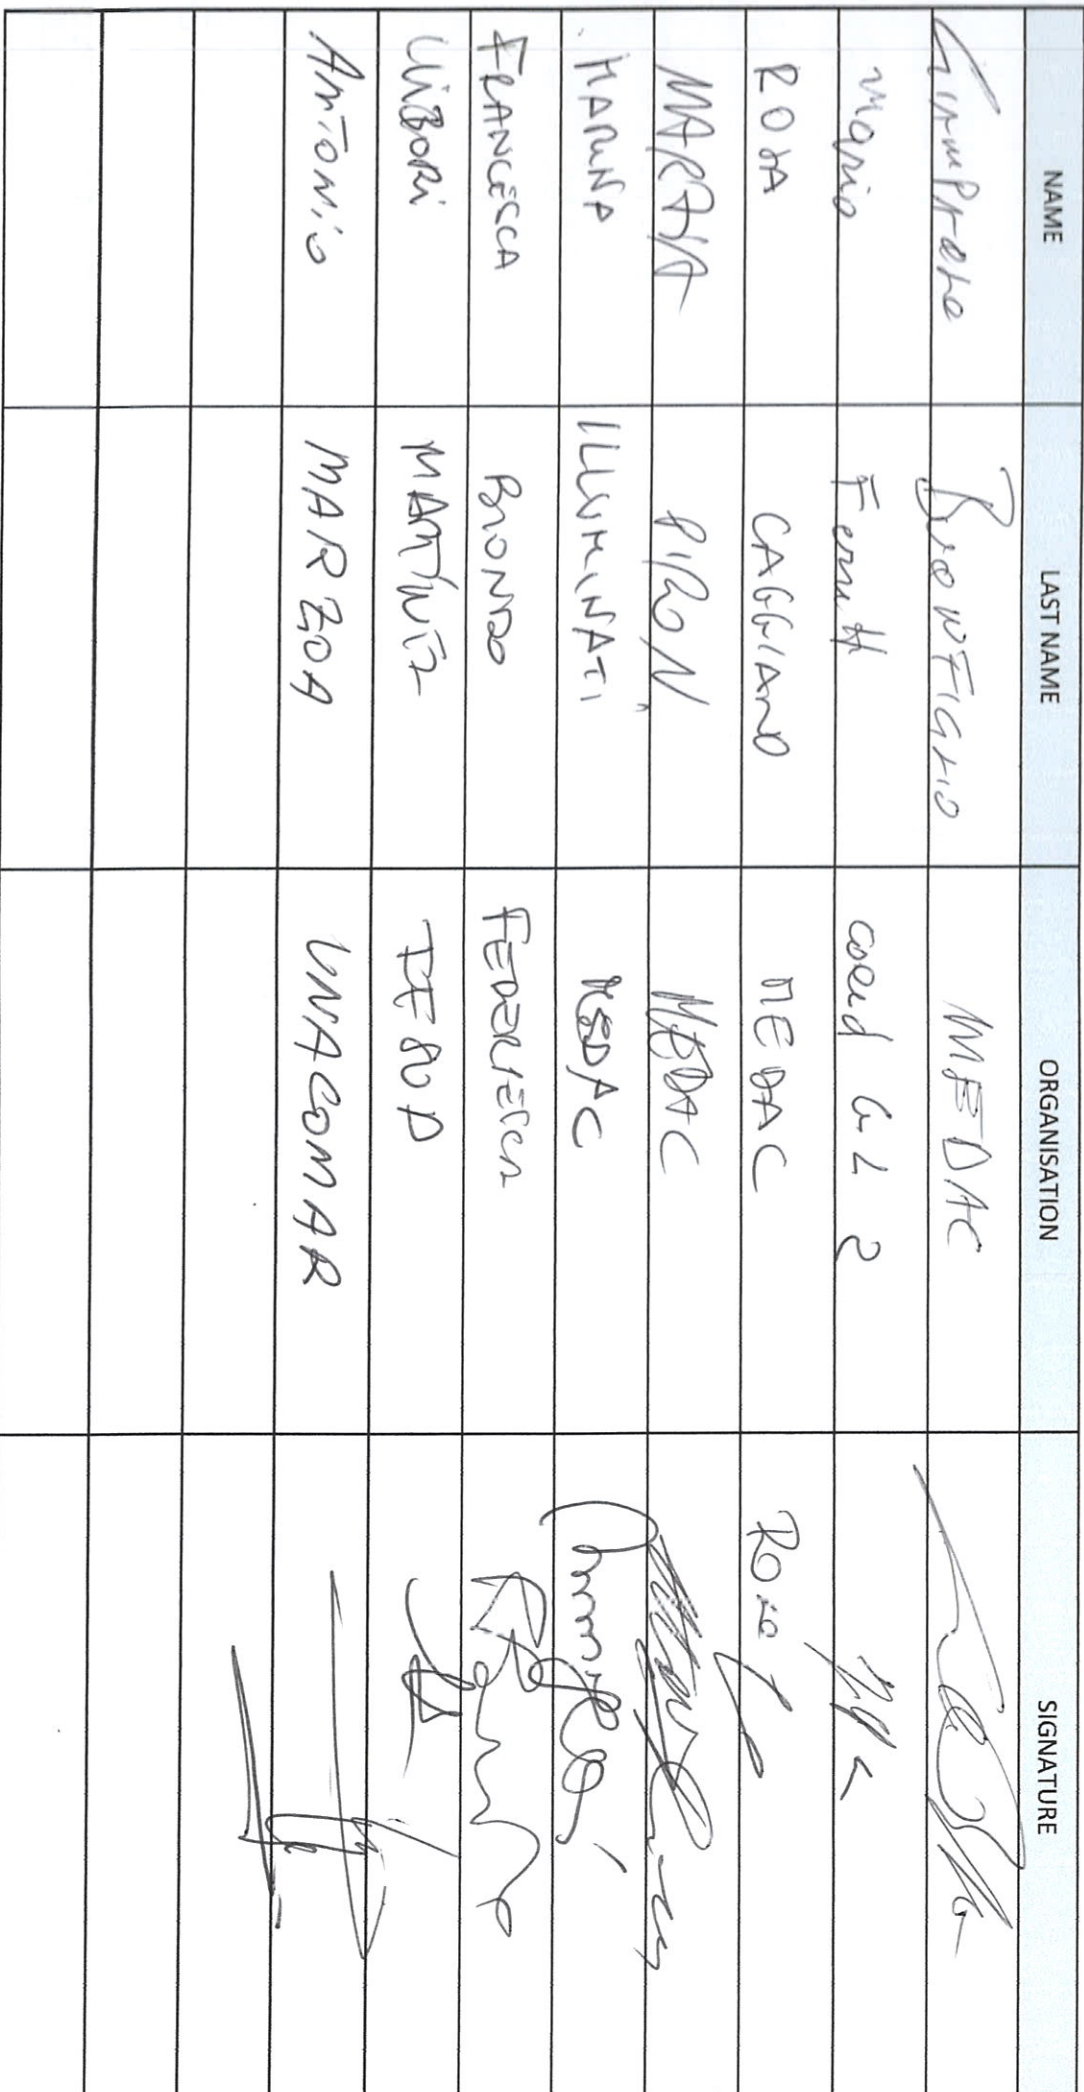 NAME LAST NAME ORGANISATION SIGNATURE
BUONFIGLIO MEDAC
Mario Ferretti coord GL 2
ROSA CAGGIANO MEDAC Rosa
MARTA PIRON MEDAC
MARINA ILLUMINATI MEDAC
FRANCESCA BIONDO FEDERPESCA
LLIBORI MARTINEZ IFSUA
ANTONIO MARZOA UNACOMAR